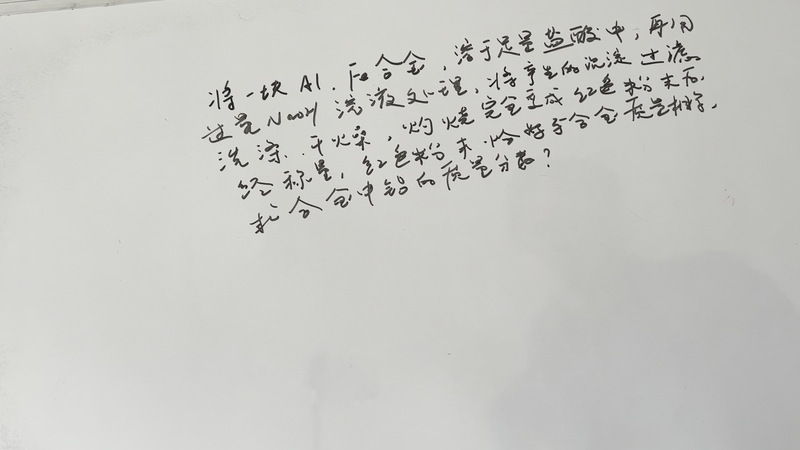 将一块Al、Fe合金,溶于足量盐酸中,再用
过量NaOH溶液处理,将产生的沉淀过滤
洗涤、干燥,灼烧完全变成红色粉末后,
经称量,红色粉末恰好与合金质量相等,
求合金中铝的质量分数?